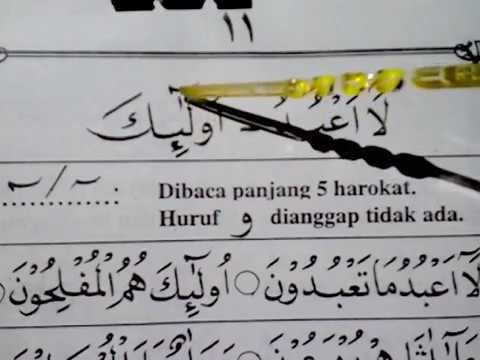 ١١
لَآ اَعْبُدُ اُولٰٓئِكَ
Dibaca panjang 5 harokat.
Huruf و dianggap tidak ada.
لَآ اَعْبُدُ مَا تَعْبُدُوْنَ ○ اُولٰٓئِكَ هُمُ الْمُفْلِحُوْنَ ○